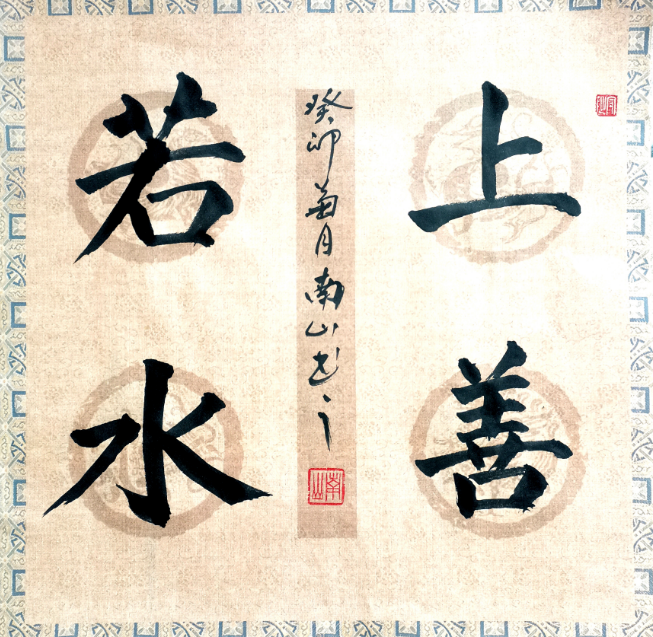 上善
若水
癸卯菊月南山书之
南山